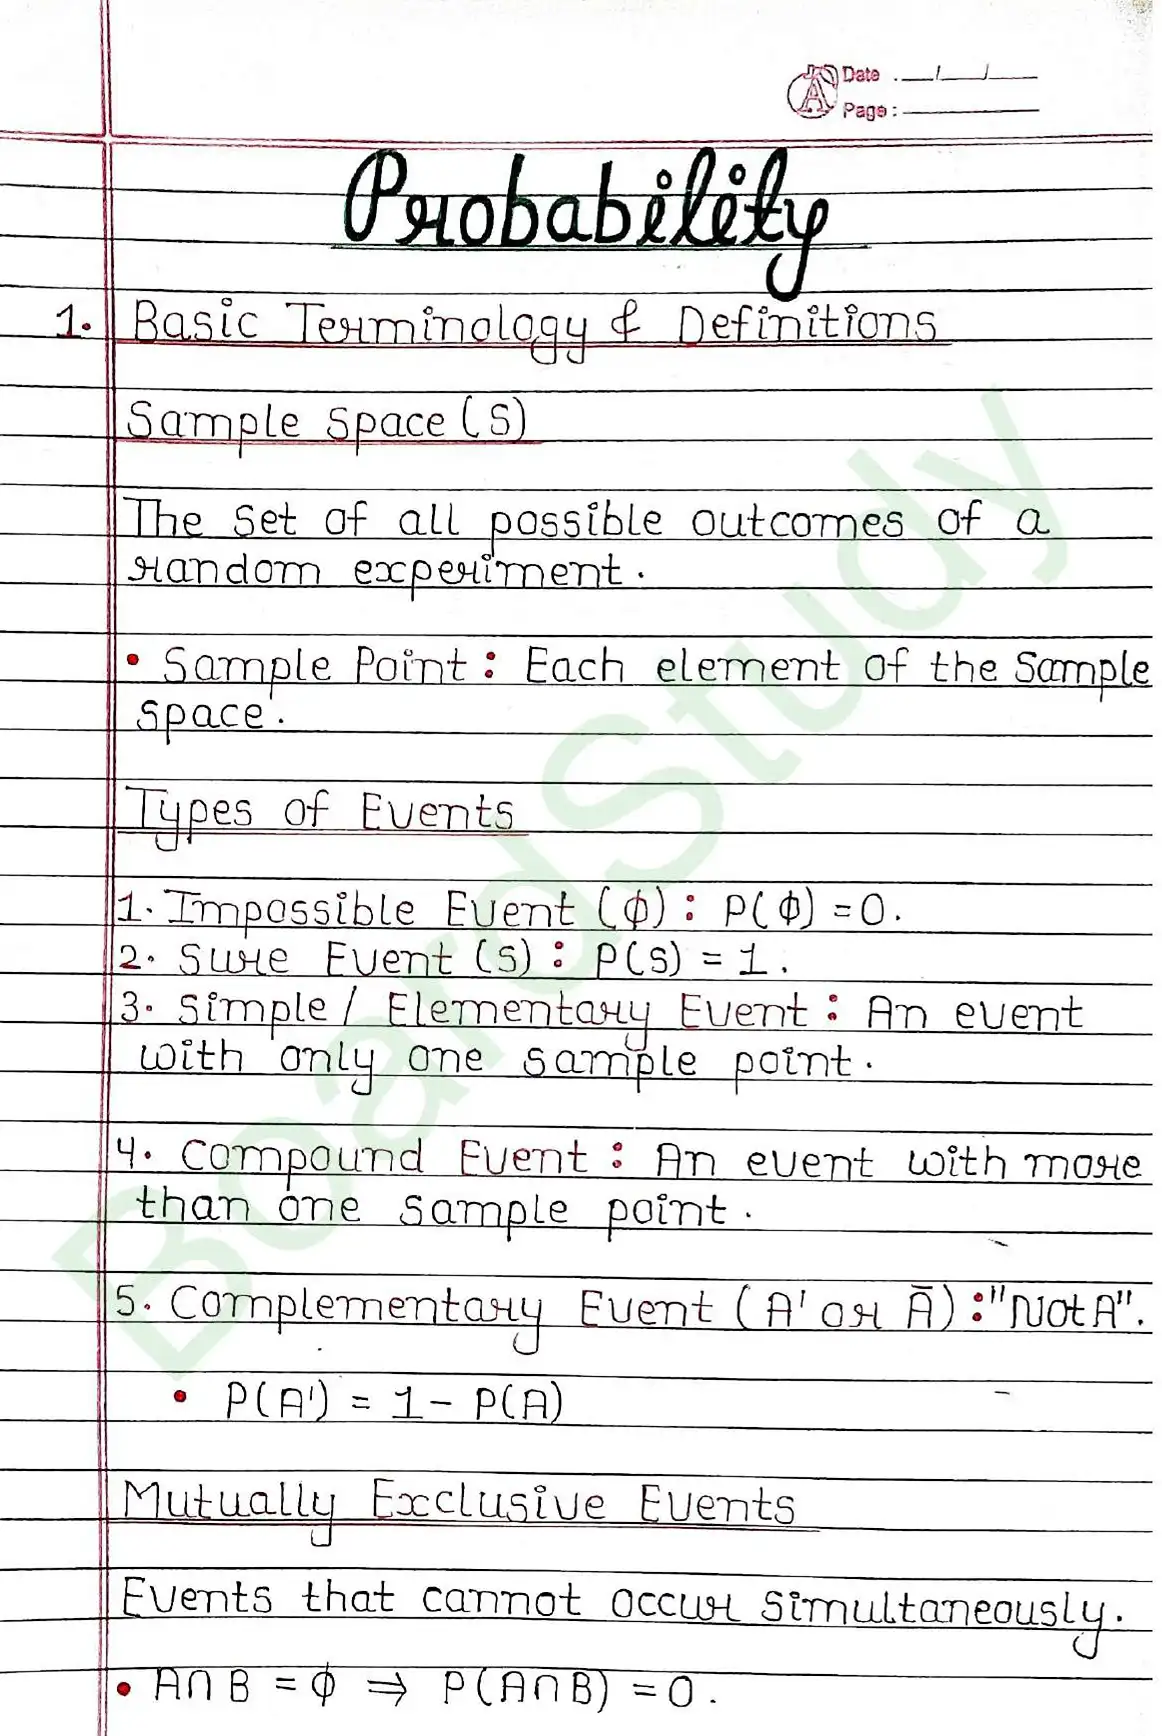 Date : __/__/__
Page :
Probability
1. Basic Terminology & Definitions
Sample Space (S)
The set of all possible outcomes of a
random experiment.
• Sample Point : Each element of the sample
space.
Types of Events
1. Impossible Event (ϕ) : P(ϕ) = 0.
2. Sure Event (S) : P(S) = 1.
3. Simple / Elementary Event : An event
with only one sample point.
4. Compound Event : An event with more
than one sample point.
5. Complementary Event (A' or Ā) : "Not A".
• P(A') = 1 - P(A)
Mutually Exclusive Events
Events that cannot occur simultaneously.
• A∩B = ϕ ⇒ P(A∩B) = 0.
BoardStudy